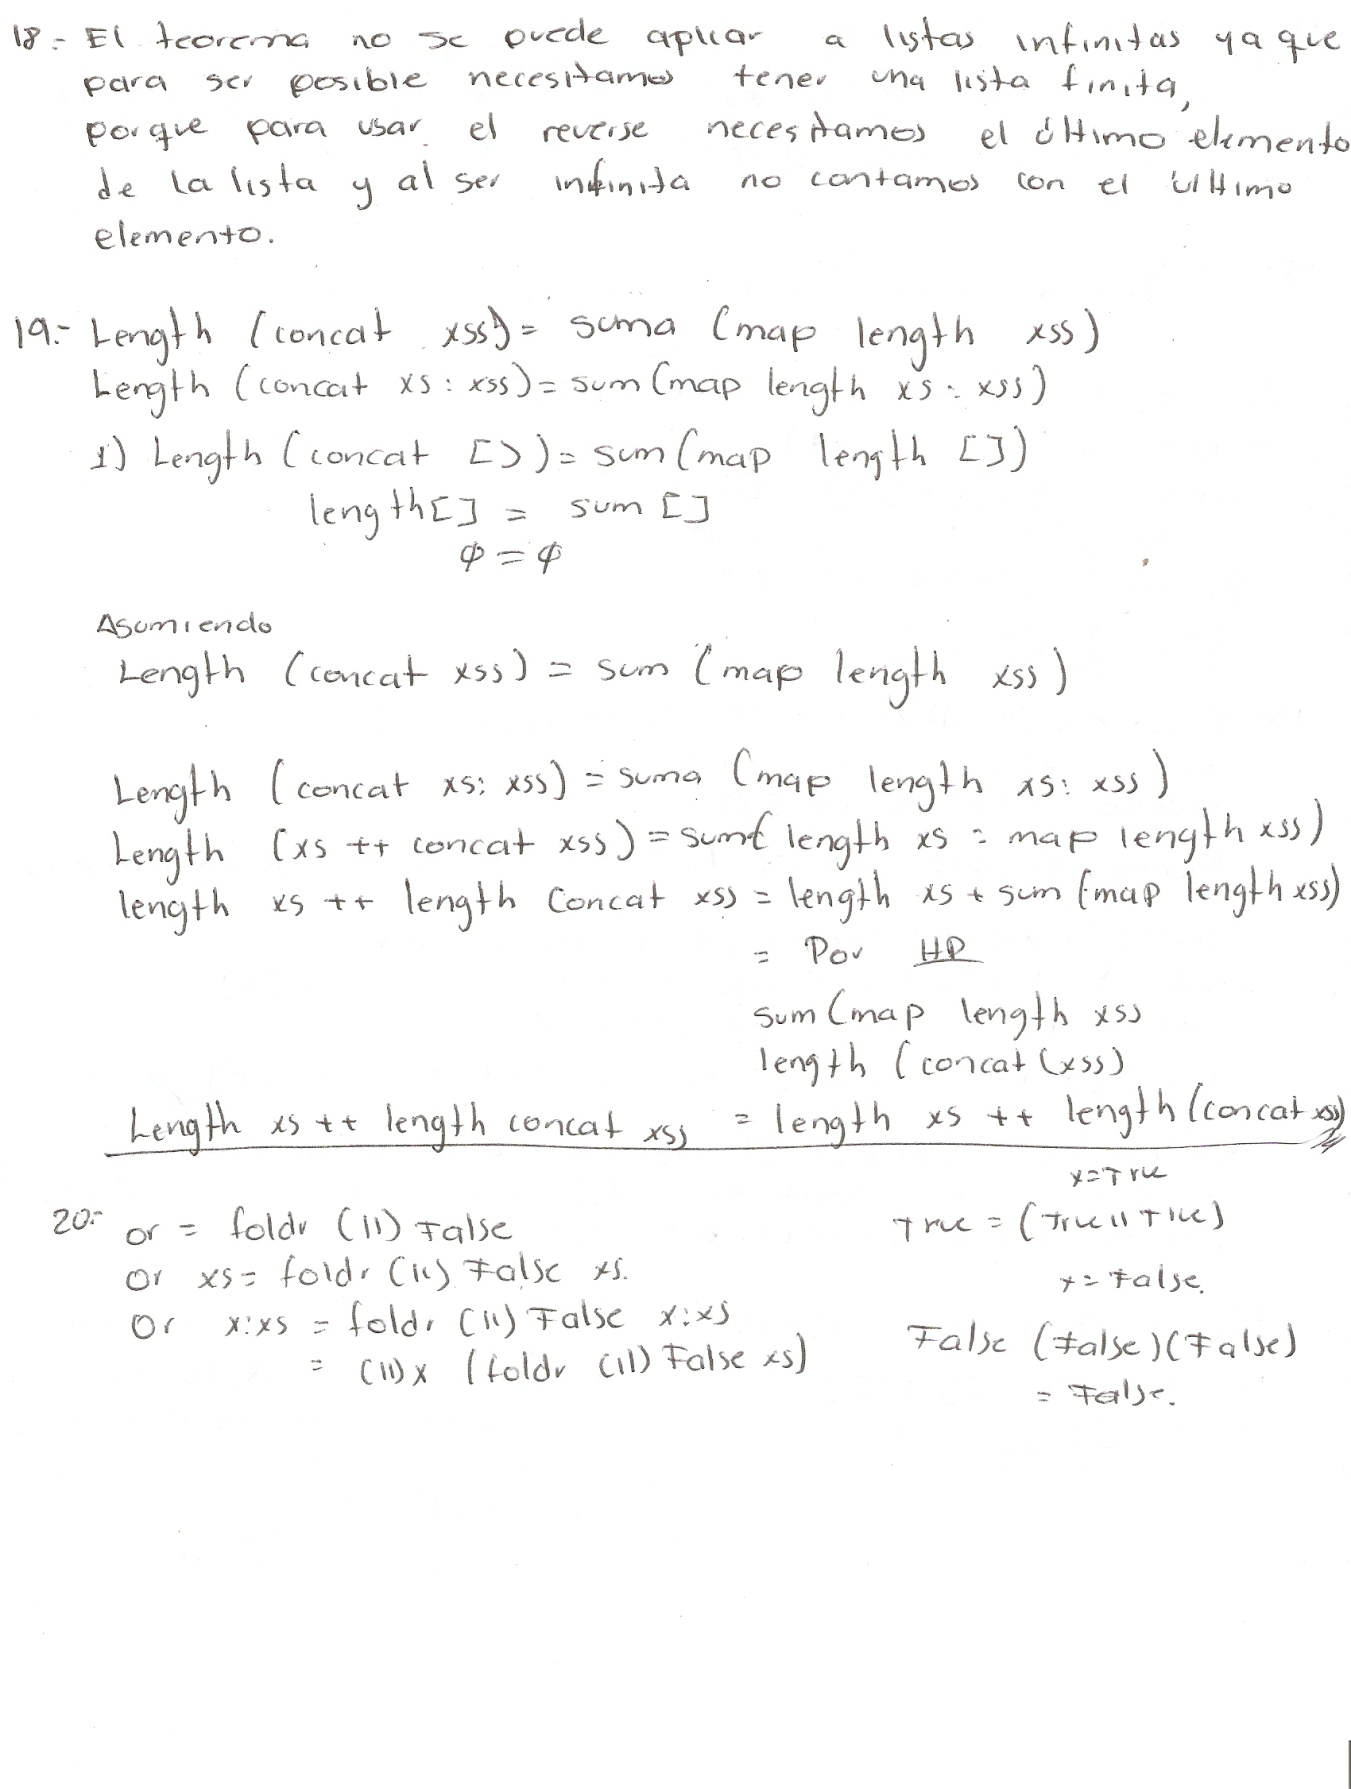 18.- El teorema no se puede aplicar a listas infinitas ya que
para ser posible necesitamos tener una lista finita,
porque para usar el reverse necesitamos el último elemento
de la lista y al ser infinita no contamos con el último
elemento.
19.- Length (concat xss) = suma (map length xss)
Length (concat xs : xss) = sum (map length xs : xss)
1) Length (concat []) = sum (map length [])
length [] = sum []
φ = φ
Asumiendo
Length (concat xss) = sum (map length xss)
Length (concat xs: xss) = suma (map length xs: xss)
Length (xs ++ concat xss) = sum( length xs : map length xss)
length xs ++ length Concat xss = length xs + sum (map length xss)
= Por HP
sum (map length xss
length (concat (xss)
Length xs ++ length concat xss = length xs ++ length (concat xss)
20.- or = foldr (||) False
or xs = foldr (||) False xs.
Or x:xs = foldr (||) False x:xs
= (||) x (foldr (||) False xs)
x=True
True = (True || True)
x = False.
False (False)(False)
= False.